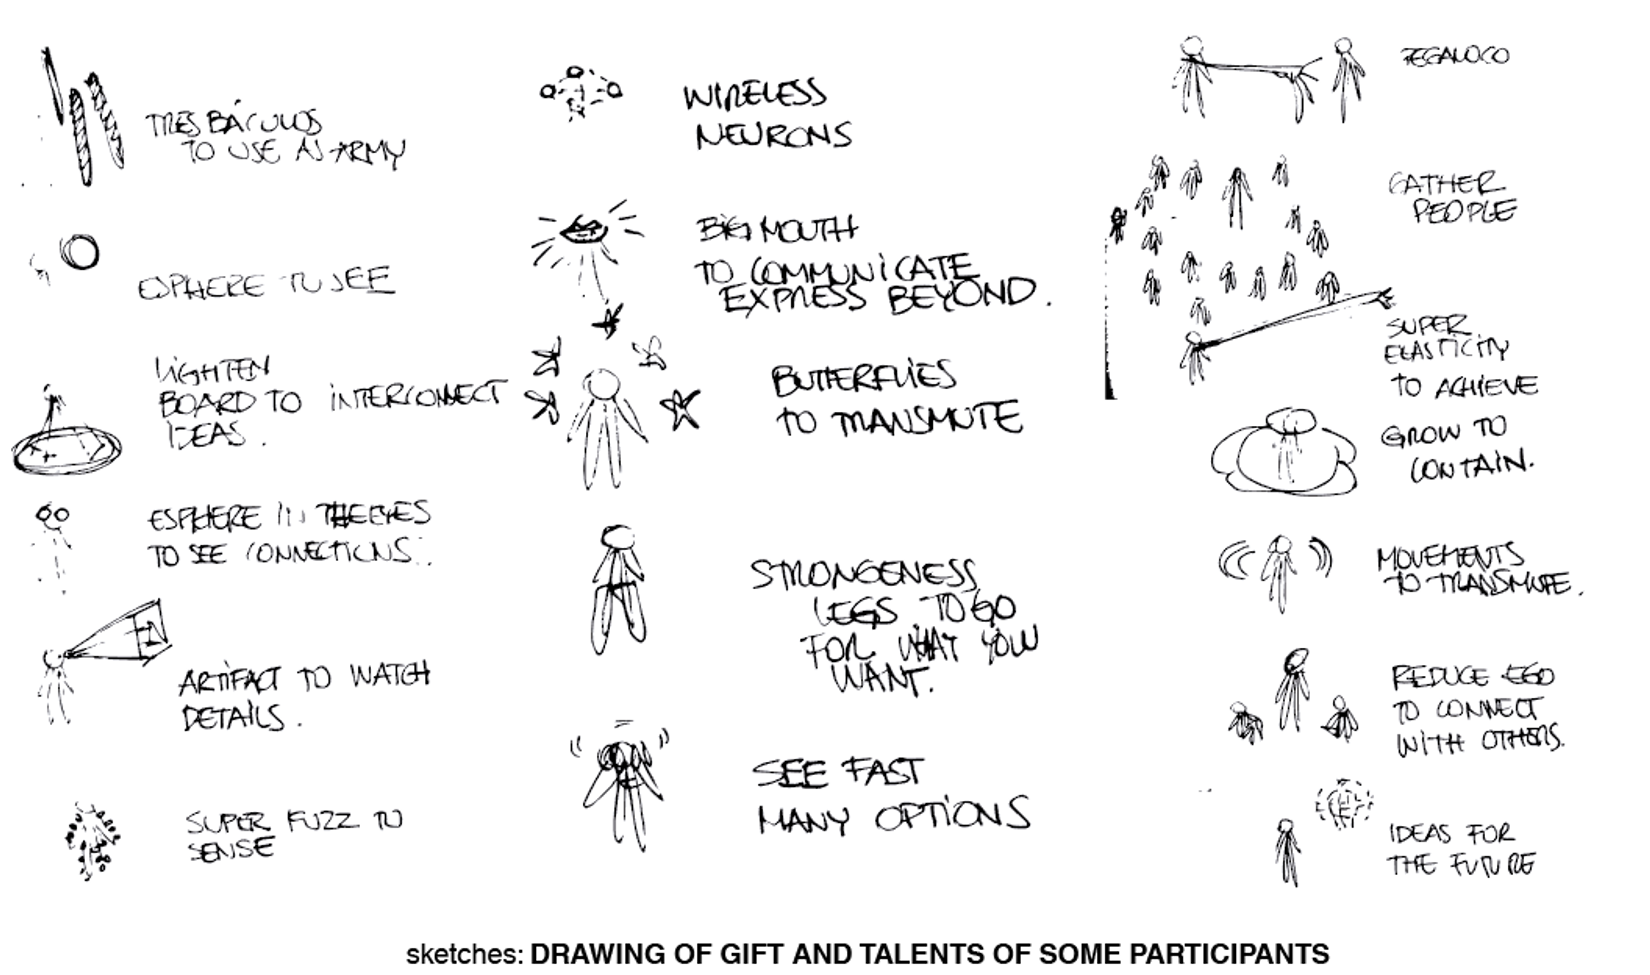 TRES BÁCULOS
TO USE AS ARMY
ESPHERE TO SEE
LIGHTEN
BOARD TO INTERCONNECT
IDEAS.
ESPHERE IN THE EYES
TO SEE CONNECTIONS.
ARTIFACT TO WATCH
DETAILS.
SUPER FUZZ TO
SENSE
WIRELESS
NEURONS
BIG MOUTH
TO COMMUNICATE
EXPRESS BEYOND.
BUTTERFLIES
TO TRANSMUTE
STRONGENESS
LEGS TO GO
FOR WHAT YOU
WANT.
SEE FAST
MANY OPTIONS
GATHER
PEOPLE
SUPER
ELASTICITY
TO ACHIEVE
GROW TO
CONTAIN.
MOVEMENTS
TO TRANSMUTE.
REDUCE EGO
TO CONNECT
WITH OTHERS.
IDEAS FOR
THE FUTURE
sketches: DRAWING OF GIFT AND TALENTS OF SOME PARTICIPANTS